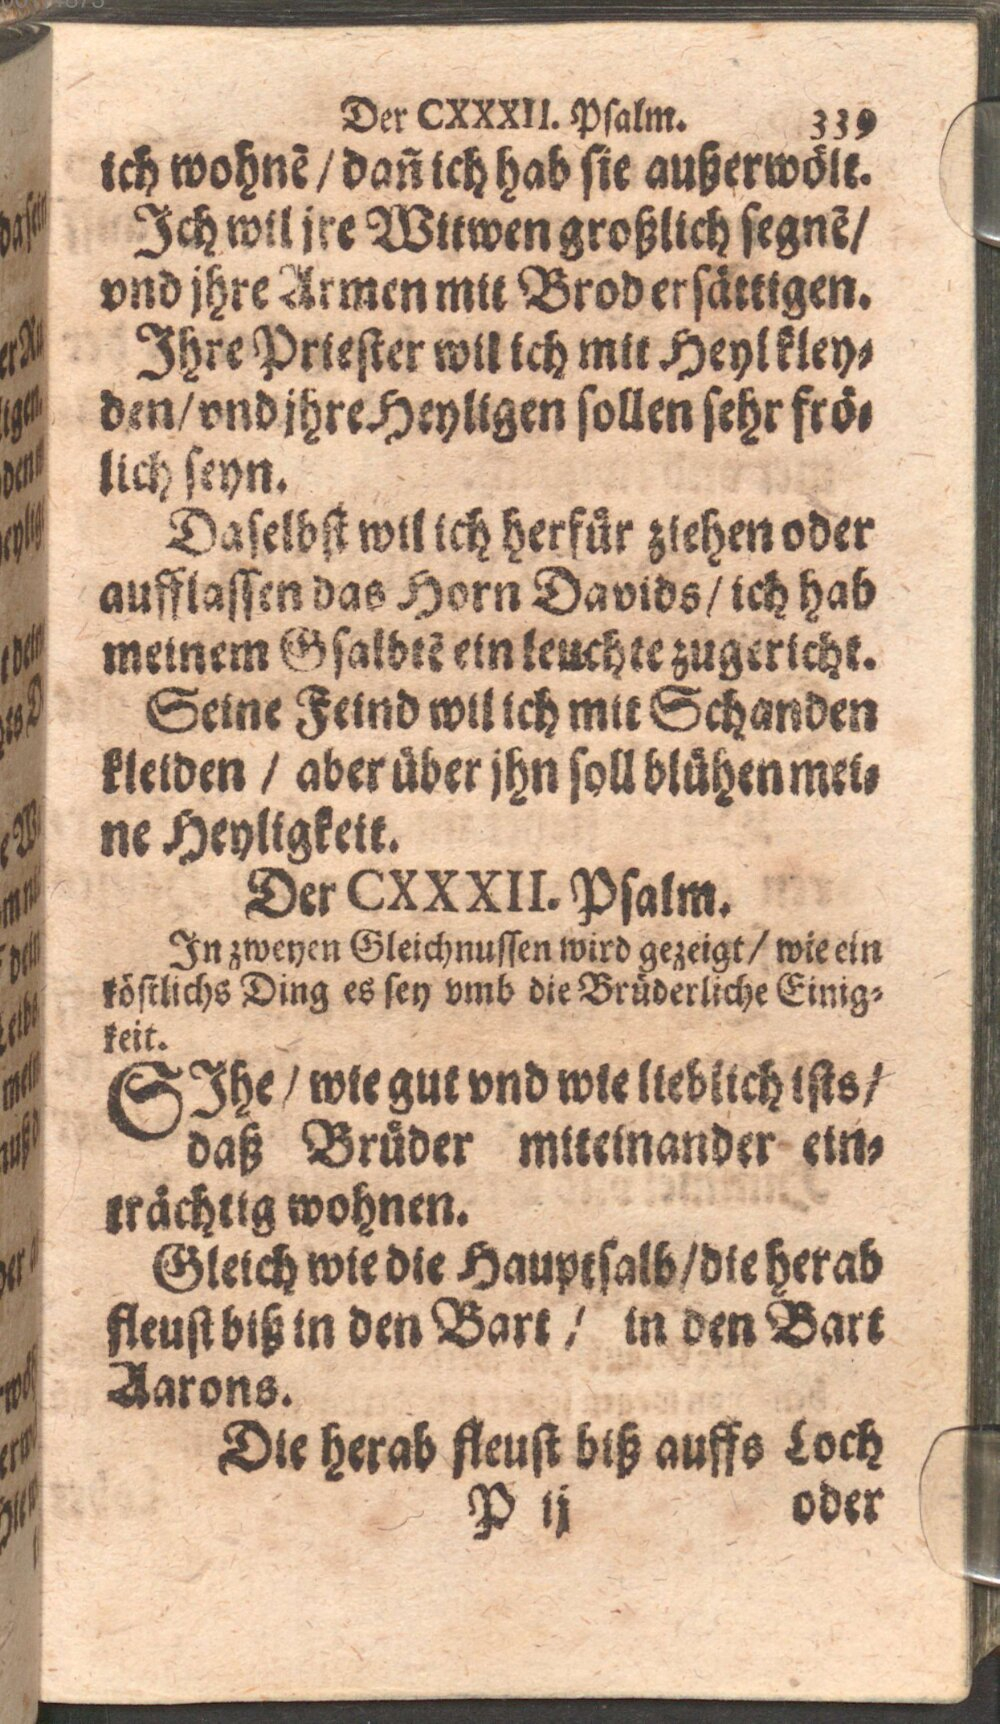 Der CXXXII. Psalm. 339
ich wohnē / dañ ich hab sie außerwölt.
Ich wil jre Wittwen großlich segnē /
vnd jhre Armen mit Brod ersättigen.
Ihre Priester wil ich mit Heyl kley-
den / vnd jhre Heyligen sollen sehr frö-
lich seyn.
Daselbst wil ich herfür ziehen oder
aufflassen das Horn Davids / ich hab
meinem Gsalbtē ein leuchte zugericht.
Seine Feind wil ich mit Schanden
kleiden / aber über jhn soll blühen mei-
ne Heyligkeit.
Der CXXXII. Psalm.
In zweyen Gleichnussen wird gezeigt / wie ein
köstlichs Ding es sey vmb die Brüderliche Einig-
keit.
SIhe / wie gut vnd wie lieblich ists /
daß Brüder miteinander ein-
trächtig wohnen.
Gleich wie die Hauptsalb / die herab
fleust biß in den Bart / in den Bart
Aarons.
Die herab fleust biß auffs Loch
P ij oder